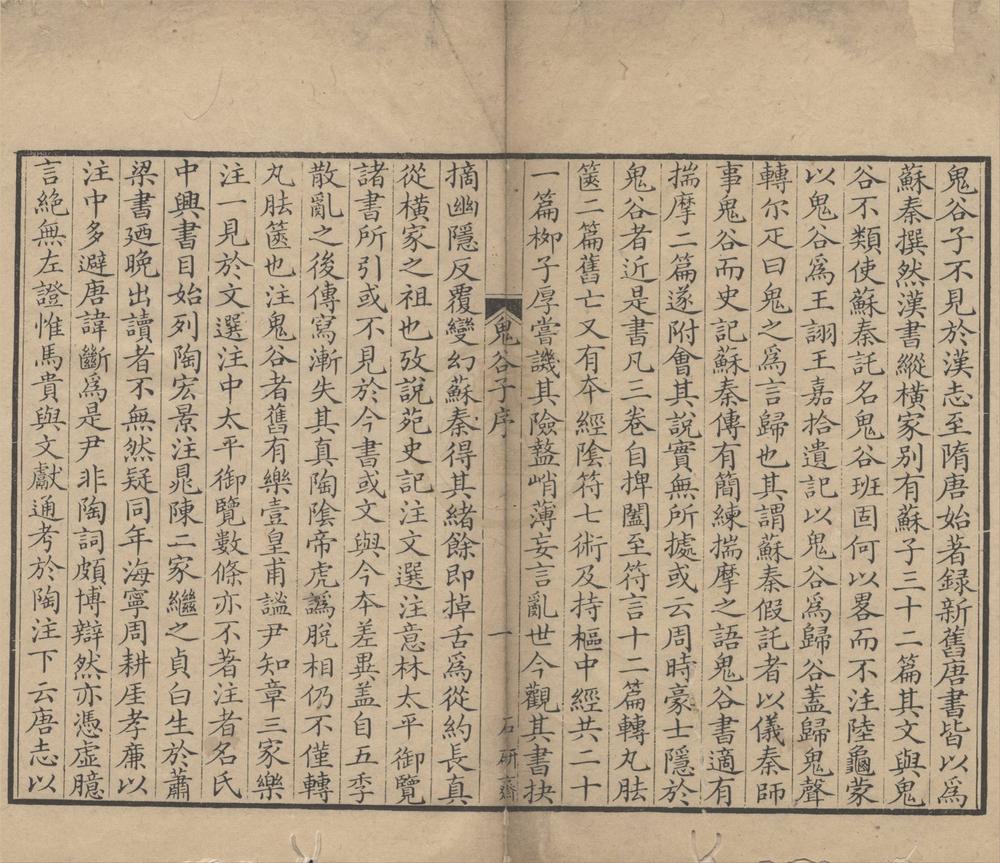 鬼谷子不見於漢志至隋唐始著録新舊唐書皆以爲
蘇秦撰然漢書縱橫家别有蘇子三十二篇其文與鬼
谷不類使蘇秦託名鬼谷班固何以畧而不注陸龜蒙
以鬼谷爲王詡王嘉拾遺記以鬼谷爲歸谷蓋歸鬼聲
轉尔疋曰鬼之爲言歸也其謂蘇秦假託者以儀秦師
事鬼谷而史記蘇秦傳有簡練揣摩之語鬼谷書適有
揣摩二篇遂附會其說實無所據或云周時豪士隱於
鬼谷者近是書凡三卷自捭闔至符言十二篇轉丸胠
篋二篇舊亡又有本經陰符七術及持樞中經共二十
一篇柳子厚嘗譏其險盭峭薄妄言亂世今觀其書抉
鬼谷子序
一
石研齋
摘幽隱反覆變幻蘇秦得其緒餘即掉舌爲從約長真
從橫家之祖也攷說苑史記注文選注意林太平御覽
諸書所引或不見於今書或文與今本差異盖自五季
散亂之後傳寫漸失其真陶陰帝虎譌脱相仍不僅轉
丸胠篋也注鬼谷者舊有樂壹皇甫謐尹知章三家樂
注一見於文選注中太平御覽數條亦不著注者名氏
中興書目始列陶宏景注晁陳二家繼之貞白生於蕭
梁書廼晚出讀者不無然疑同年海寧周耕厓孝廉以
注中多避唐諱斷爲是尹非陶詞頗博辯然亦憑虛臆
言絶無左證惟馬貴與文獻通考於陶注下云唐志以